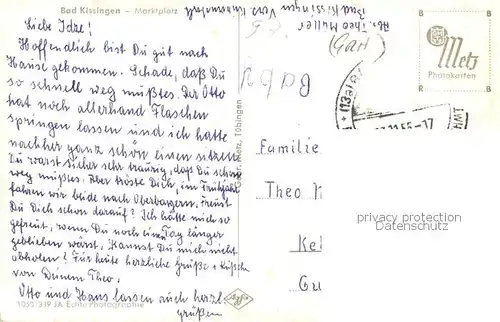 Bad Kissingen – Marktplatz
Liebe Idze!
Hoffendlich bist Du gut nach
Hause gekommen. Schade, daß Du
so schnell weg mußtes. Der Otto
hat noch allerhand Flaschen
springen lassen und ich hatte
nachher ganz schön einen sitzen
Du warst sicher sehr traurig, daß Du schon
weg mußtes. Aber tröste Dich, im Frühjahr
fahren wir beide nach Oberbayern, Freust
Du Dich schon darauf? Ich hätte mich so
gefreut, wenn Du noch einen Tag länger
geblieben wärst, Kannst Du mich nicht
abholen? Für heute herzliche Grüße + Küßchen
von Deinem Theo,
Otto und Hans lassen auch herzl.
grüßen
1050/319 JA Echte Photographie
Agfa
Gebr. Metz, Tübingen
Abs. Theo Müller
Bad Kissingen
(Gast)
Bahn
Metz
Photokarten
Familie
Theo
Kel
Gu
privacy protection
Datenschutz